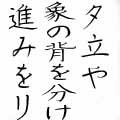 夕立や
象の背を分け
進みをり